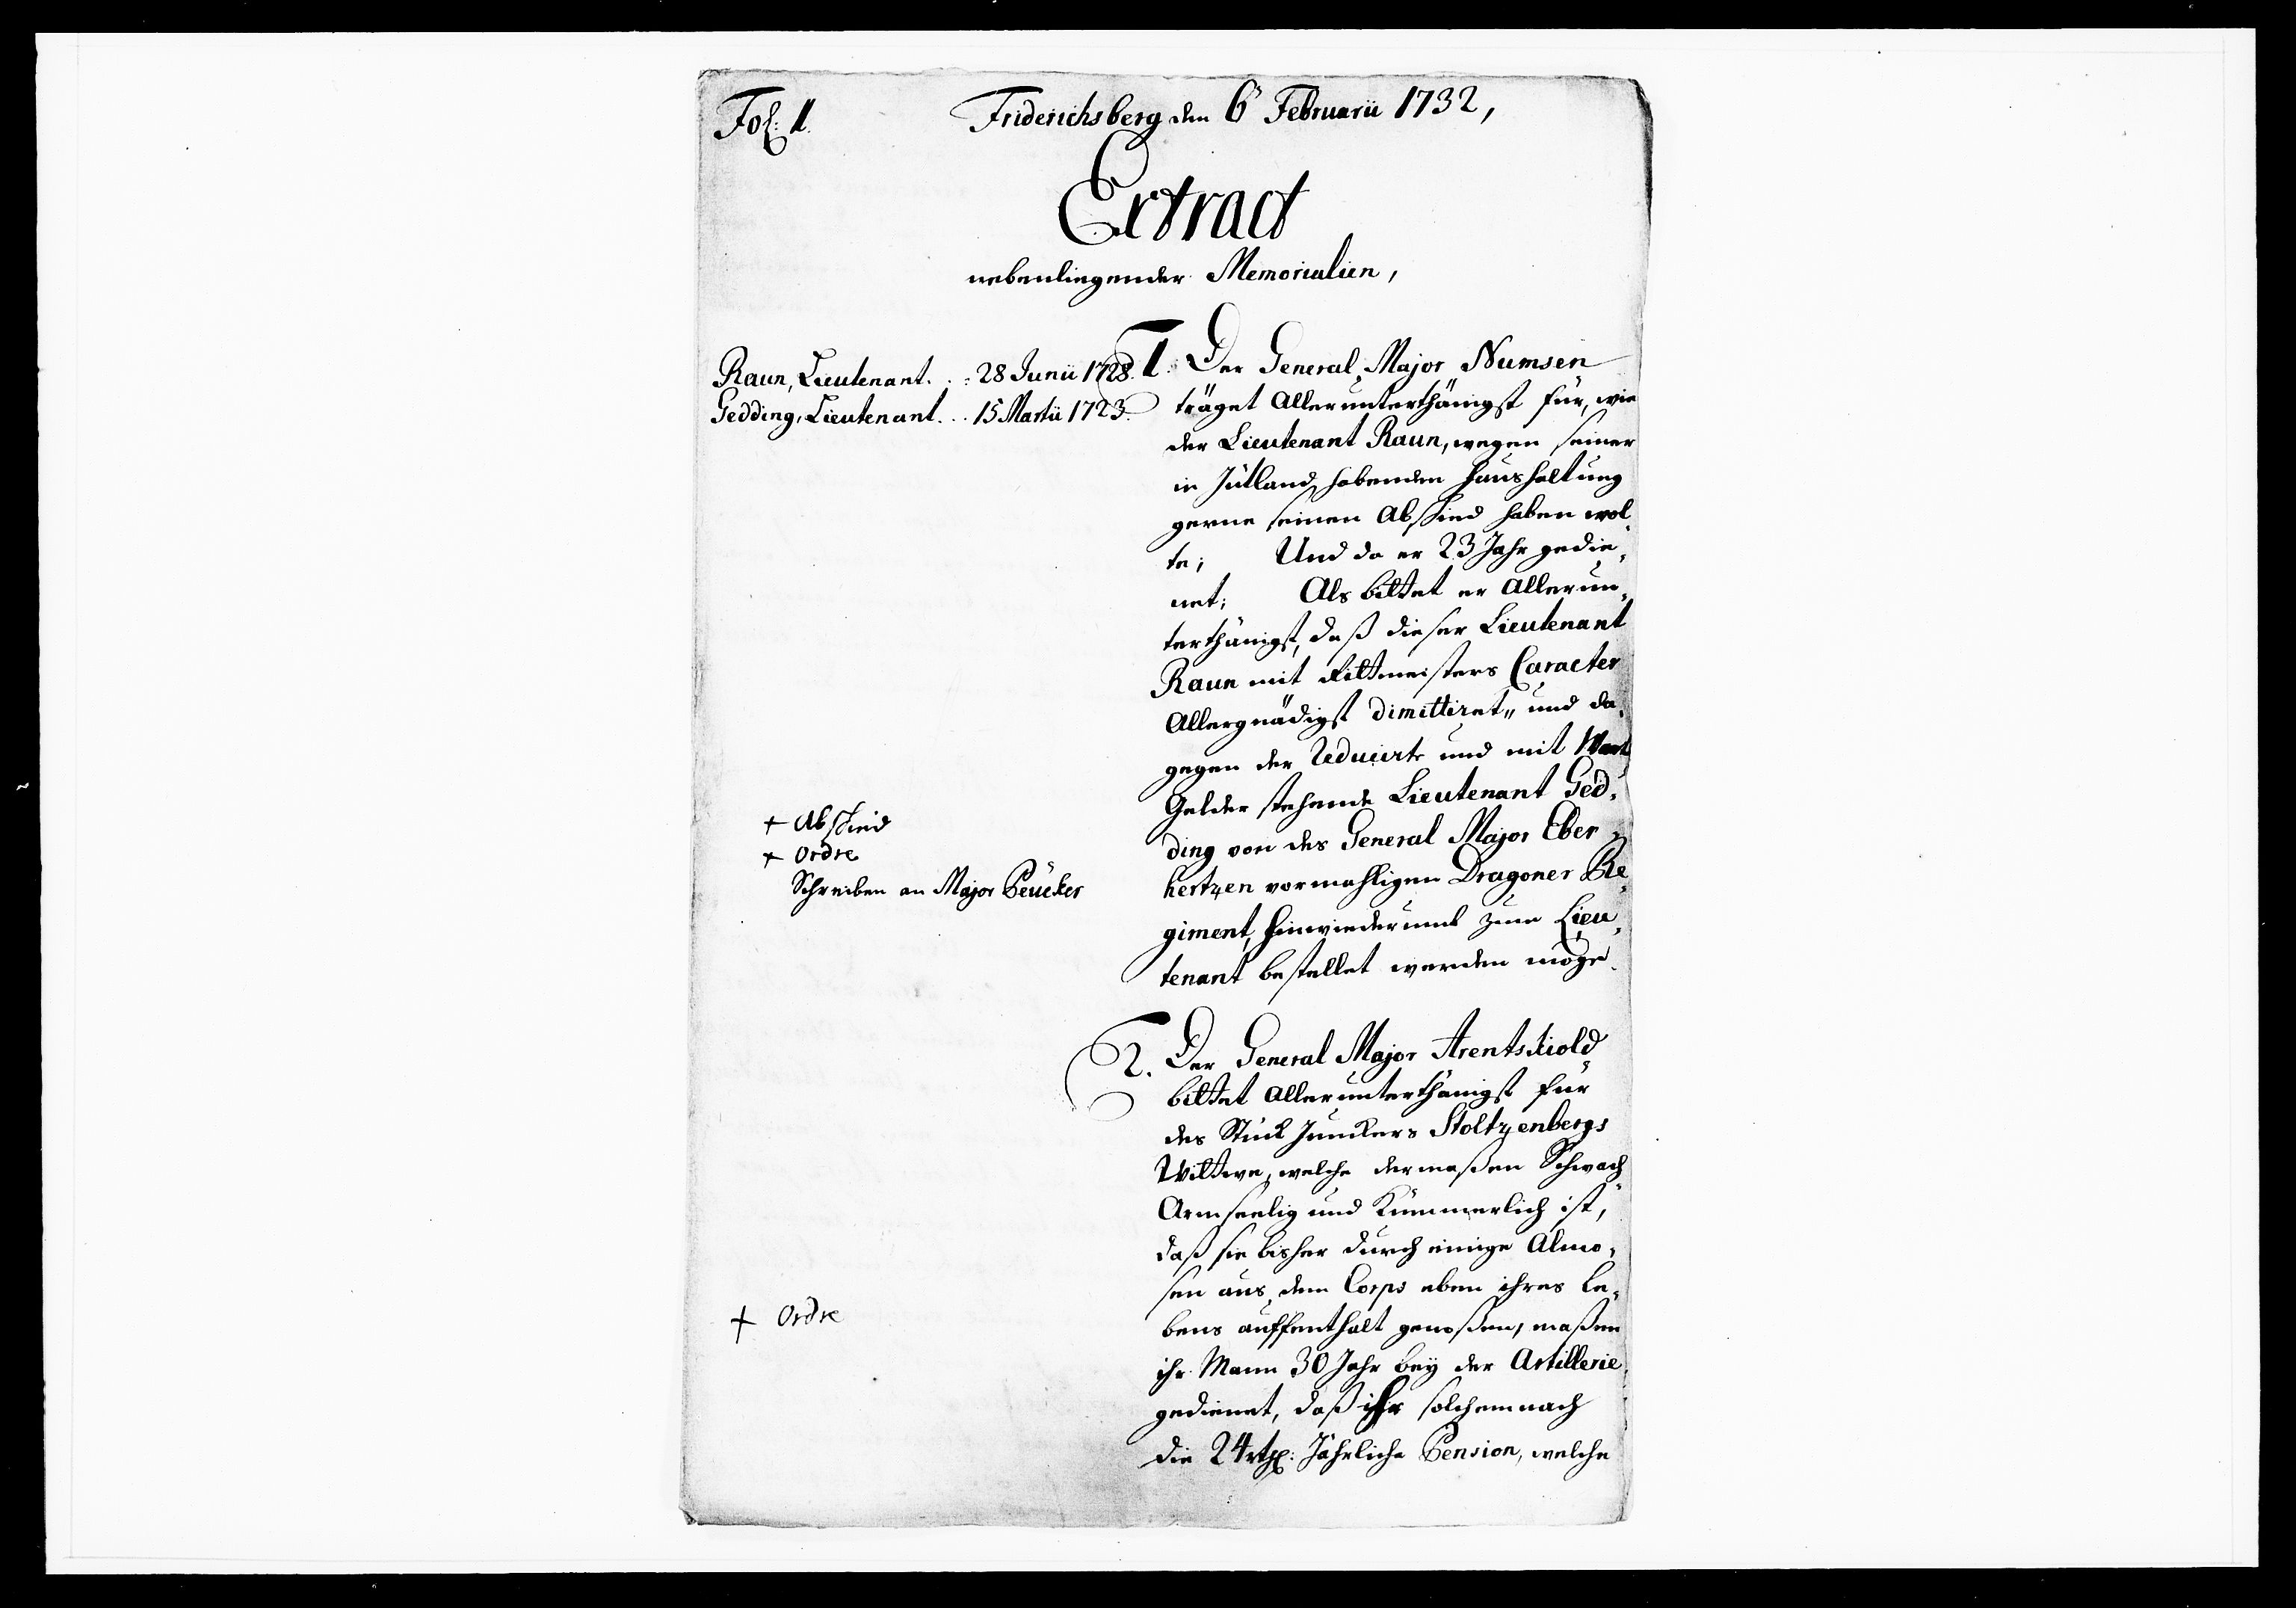 Fol: 1.
Friderichsberg den 6t Februarii 1732,
Extract
nebenliegender Memorialien,
Raun, Lieutenant. . . 28 Junii 1728.
Gedding, Lieutenant. . . 15 Martii 1723.
1. Der General Major Numsen
träget Allerunterthänigst für, wie
der Lieutenant Raun, wegen seiner
in Jütland habenden Haushaltung
gerne seinen Abschied haben wol-
te; Und da er 23 Jahr gedie-
net; Als bittet er Allerun-
terthänigst, daß dieser Lieutenant
Raun mit Rittmeisters Caracter
Allergnädigst dimittiret, und da-
gegen der Reducirte und mit Wart
Gelder stehende Lieutenant Ged-
ding von des General Major Eber-
hertzen vormahligen Dragoner Re-
giment, hinwiederumb zum Lieu-
tenant bestellet werden möge.
+ Abschied
+ Ordre
Schreiben an Major Peucker
2. Der General Major Arentskiold
bittet Allerunterthänigst für
des Stück Junckers Stoltzenbergs
Wittwe, welche dermaßen Schwach
Armseelig und Kümmerlich ist,
daß sie bisher durch einige Almo-
sen aus dem Corps eben ihres Le-
bens auffenthalt genoßen, maßen
ihr Mann 30 Jahr bey der Artillerie
gedienet, daß ihr solchemnach
die 24 rthl: Jährliche Pension, welche
+ Ordre